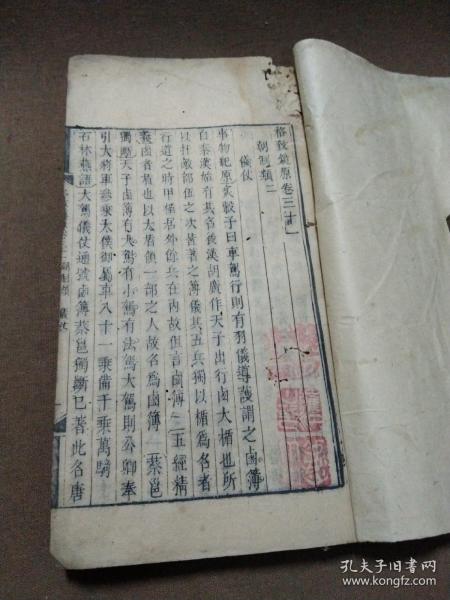 格致鏡原卷三十
朝制類二
儀仗
事物紀原炙轂子曰車駕行則有羽儀導護謂之鹵簿
自秦漢始有其名後漢胡廣作天子出行鹵大楯也所
以扞敵部伍之次皆著之簿儀其五兵獨以楯為名者
行道之時甲楯居外餘兵在內故但言鹵簿 五經精
義鹵者楯也以大盾領一部之人故名為鹵簿 蔡邕
獨斷天子鹵簿有大駕有小駕有法駕大駕則公卿奉
引大將軍參乘太僕御屬車八十一乘備千乘萬騎
石林燕語大駕儀仗通號鹵簿蔡邕獨斷已著此名唐
孔夫子旧书网
www.kongfz.com